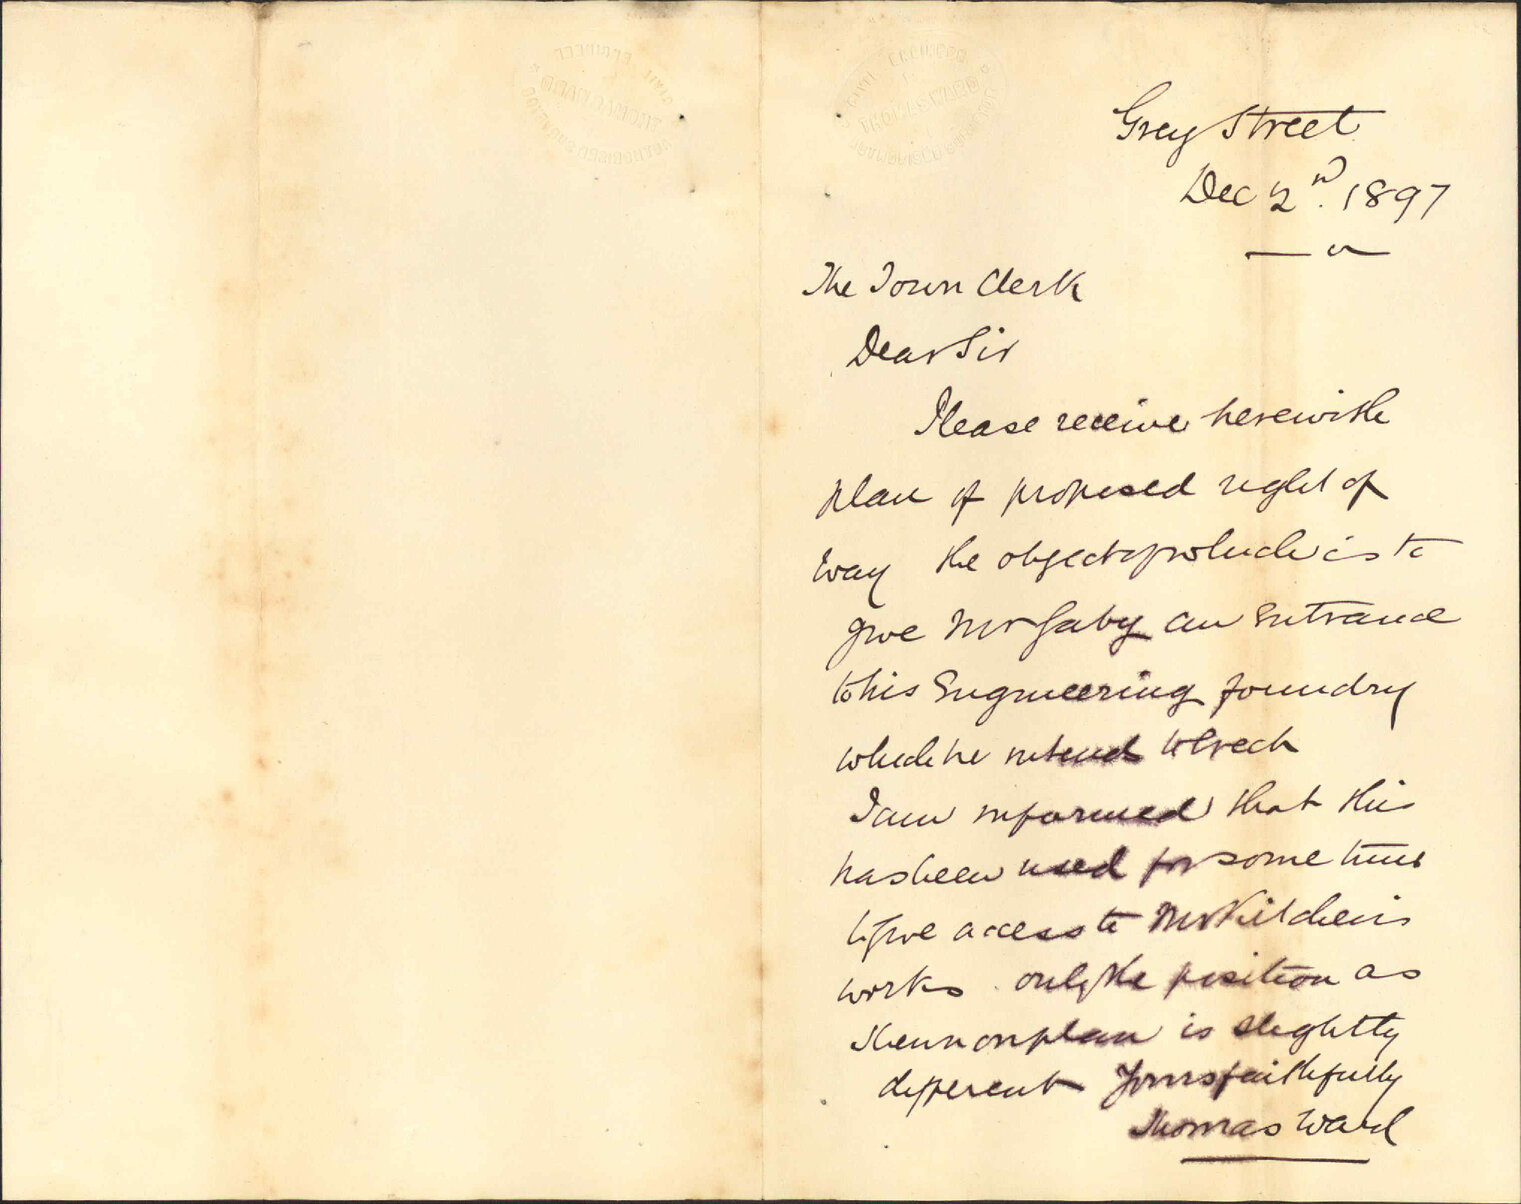 CIVIL ENGINEER
THOMAS WARD
AUTHORISED SURVEYOR
Grey Street
Dec 2nd. 1897
The Town Clerk
Dear Sir
Please receive herewith
plan of proposed right of
way the object of which is to
give Mr Gaby an entrance
to his Engineering foundry
which he intend to Erect
I am informed that this
has been used for some time
to give access to Mr Kitchen's
works. only the position as
shewn on plan is slightly
different Yours faithfully
Thomas Ward